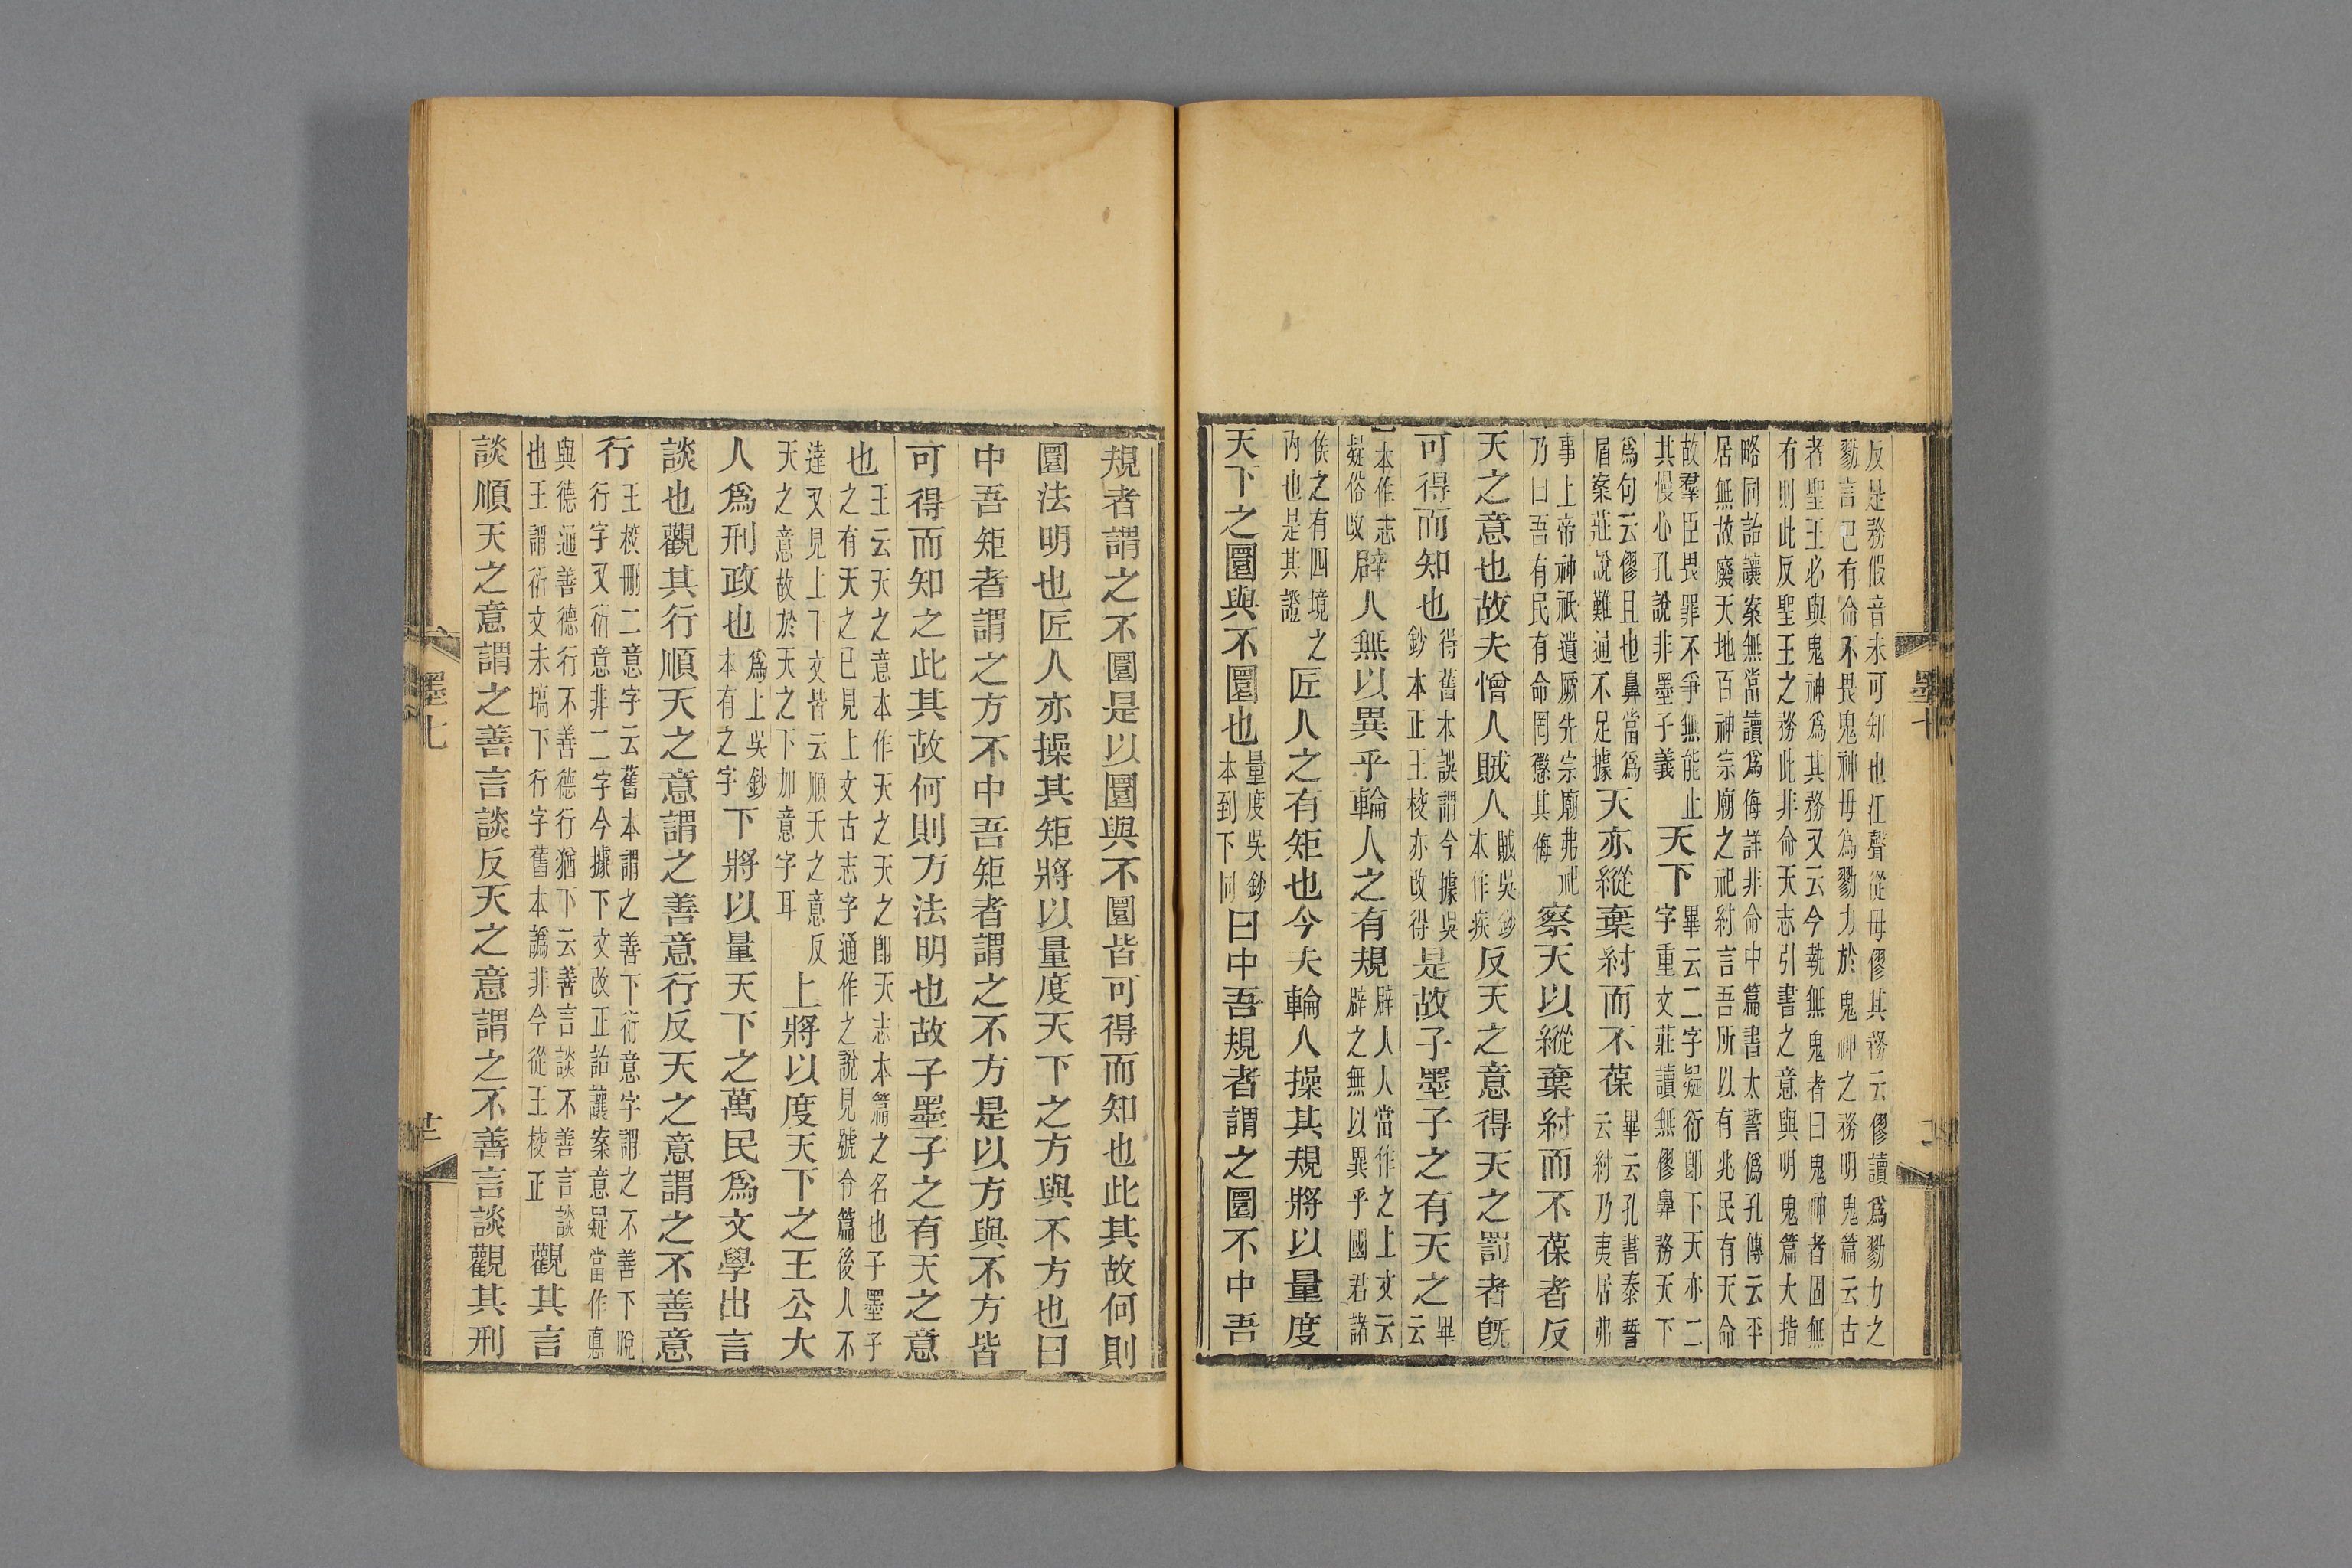 反是務假音未可知也江聲從毋僇其務云僇讀爲勠力之
勠言已有命不畏鬼神毋爲勠力於鬼神之務明鬼篇云古
者聖王必與鬼神爲其務又云今執無鬼者曰鬼神者固無
有則此反聖王之務此非命天志引書之意與明鬼篇大指
略同詒讓案無當讀爲侮詳非命中篇書太誓僞孔傳云平
居無故廢天地百神宗廟之祀紂言吾所以有兆民有天命
故羣臣畏罪不爭無能止
其慢心孔說非墨子義
天下
畢云二字疑衍卽下天亦二
字重文莊讀無僇鼻務天下
爲句云僇且也鼻當爲
屑案莊說難通不足據
天亦縱棄紂而不葆
畢云孔書泰誓
云紂乃夷居弗
事上帝神祇遺厥先宗廟弗祀
乃曰吾有民有命罔懲其侮
察天以縱棄紂而不葆者反
天之意也故夫憎人賊人
賊吳鈔
本作疾
反天之意得天之罰者旣
可得而知也
得舊本誤謂今據吳
鈔本正王校亦改得
是故子墨子之有天之
畢云
一本作志
疑俗改
辟人無以異乎輪人之有規
辟人人當作之上文云
辟之無以異乎國君諸
侯之有四境之
內也是其證
匠人之有矩也今夫輪人操其規將以量度
天下之圜與不圜也
量度吳鈔
本到下同
曰中吾規者謂之圜不中吾
規者謂之不圜是以圜與不圜皆可得而知也此其故何則
圜法明也匠人亦操其矩將以量度天下之方與不方也曰
中吾矩者謂之方不中吾矩者謂之不方是以方與不方皆
可得而知之此其故何則方法明也故子墨子之有天之意
也
王云天之意本作天之天之卽天志本篇之名也子墨子
之有天之已見上文古志字通作之說見號令篇後人不
達又見上下文皆云順天之意反
天之意故於天之下加意字耳
上將以度天下之王公大
人爲刑政也
爲上吳鈔
本有之字
下將以量天下之萬民爲文學出言
談也觀其行順天之意謂之善意行反天之意謂之不善意
行
王校刪二意字云舊本謂之善下衍意字謂之不善下脫
行字又衍意非二字今據下文改正詒讓案意疑當作悳
與德通善德行不善德行猶下云善言談不善言談
也王謂衍文未塙下行字舊本譌非今從王校正
觀其言
談順天之意謂之善言談反天之意謂之不善言談觀其刑
墨七